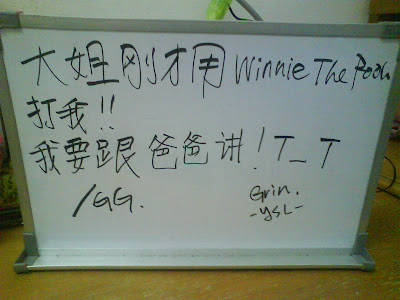 大姐刚才用 Winnie The Pooh
打我!!
我要跟爸爸讲! T_T
/GG.
Grin.
-ysl-